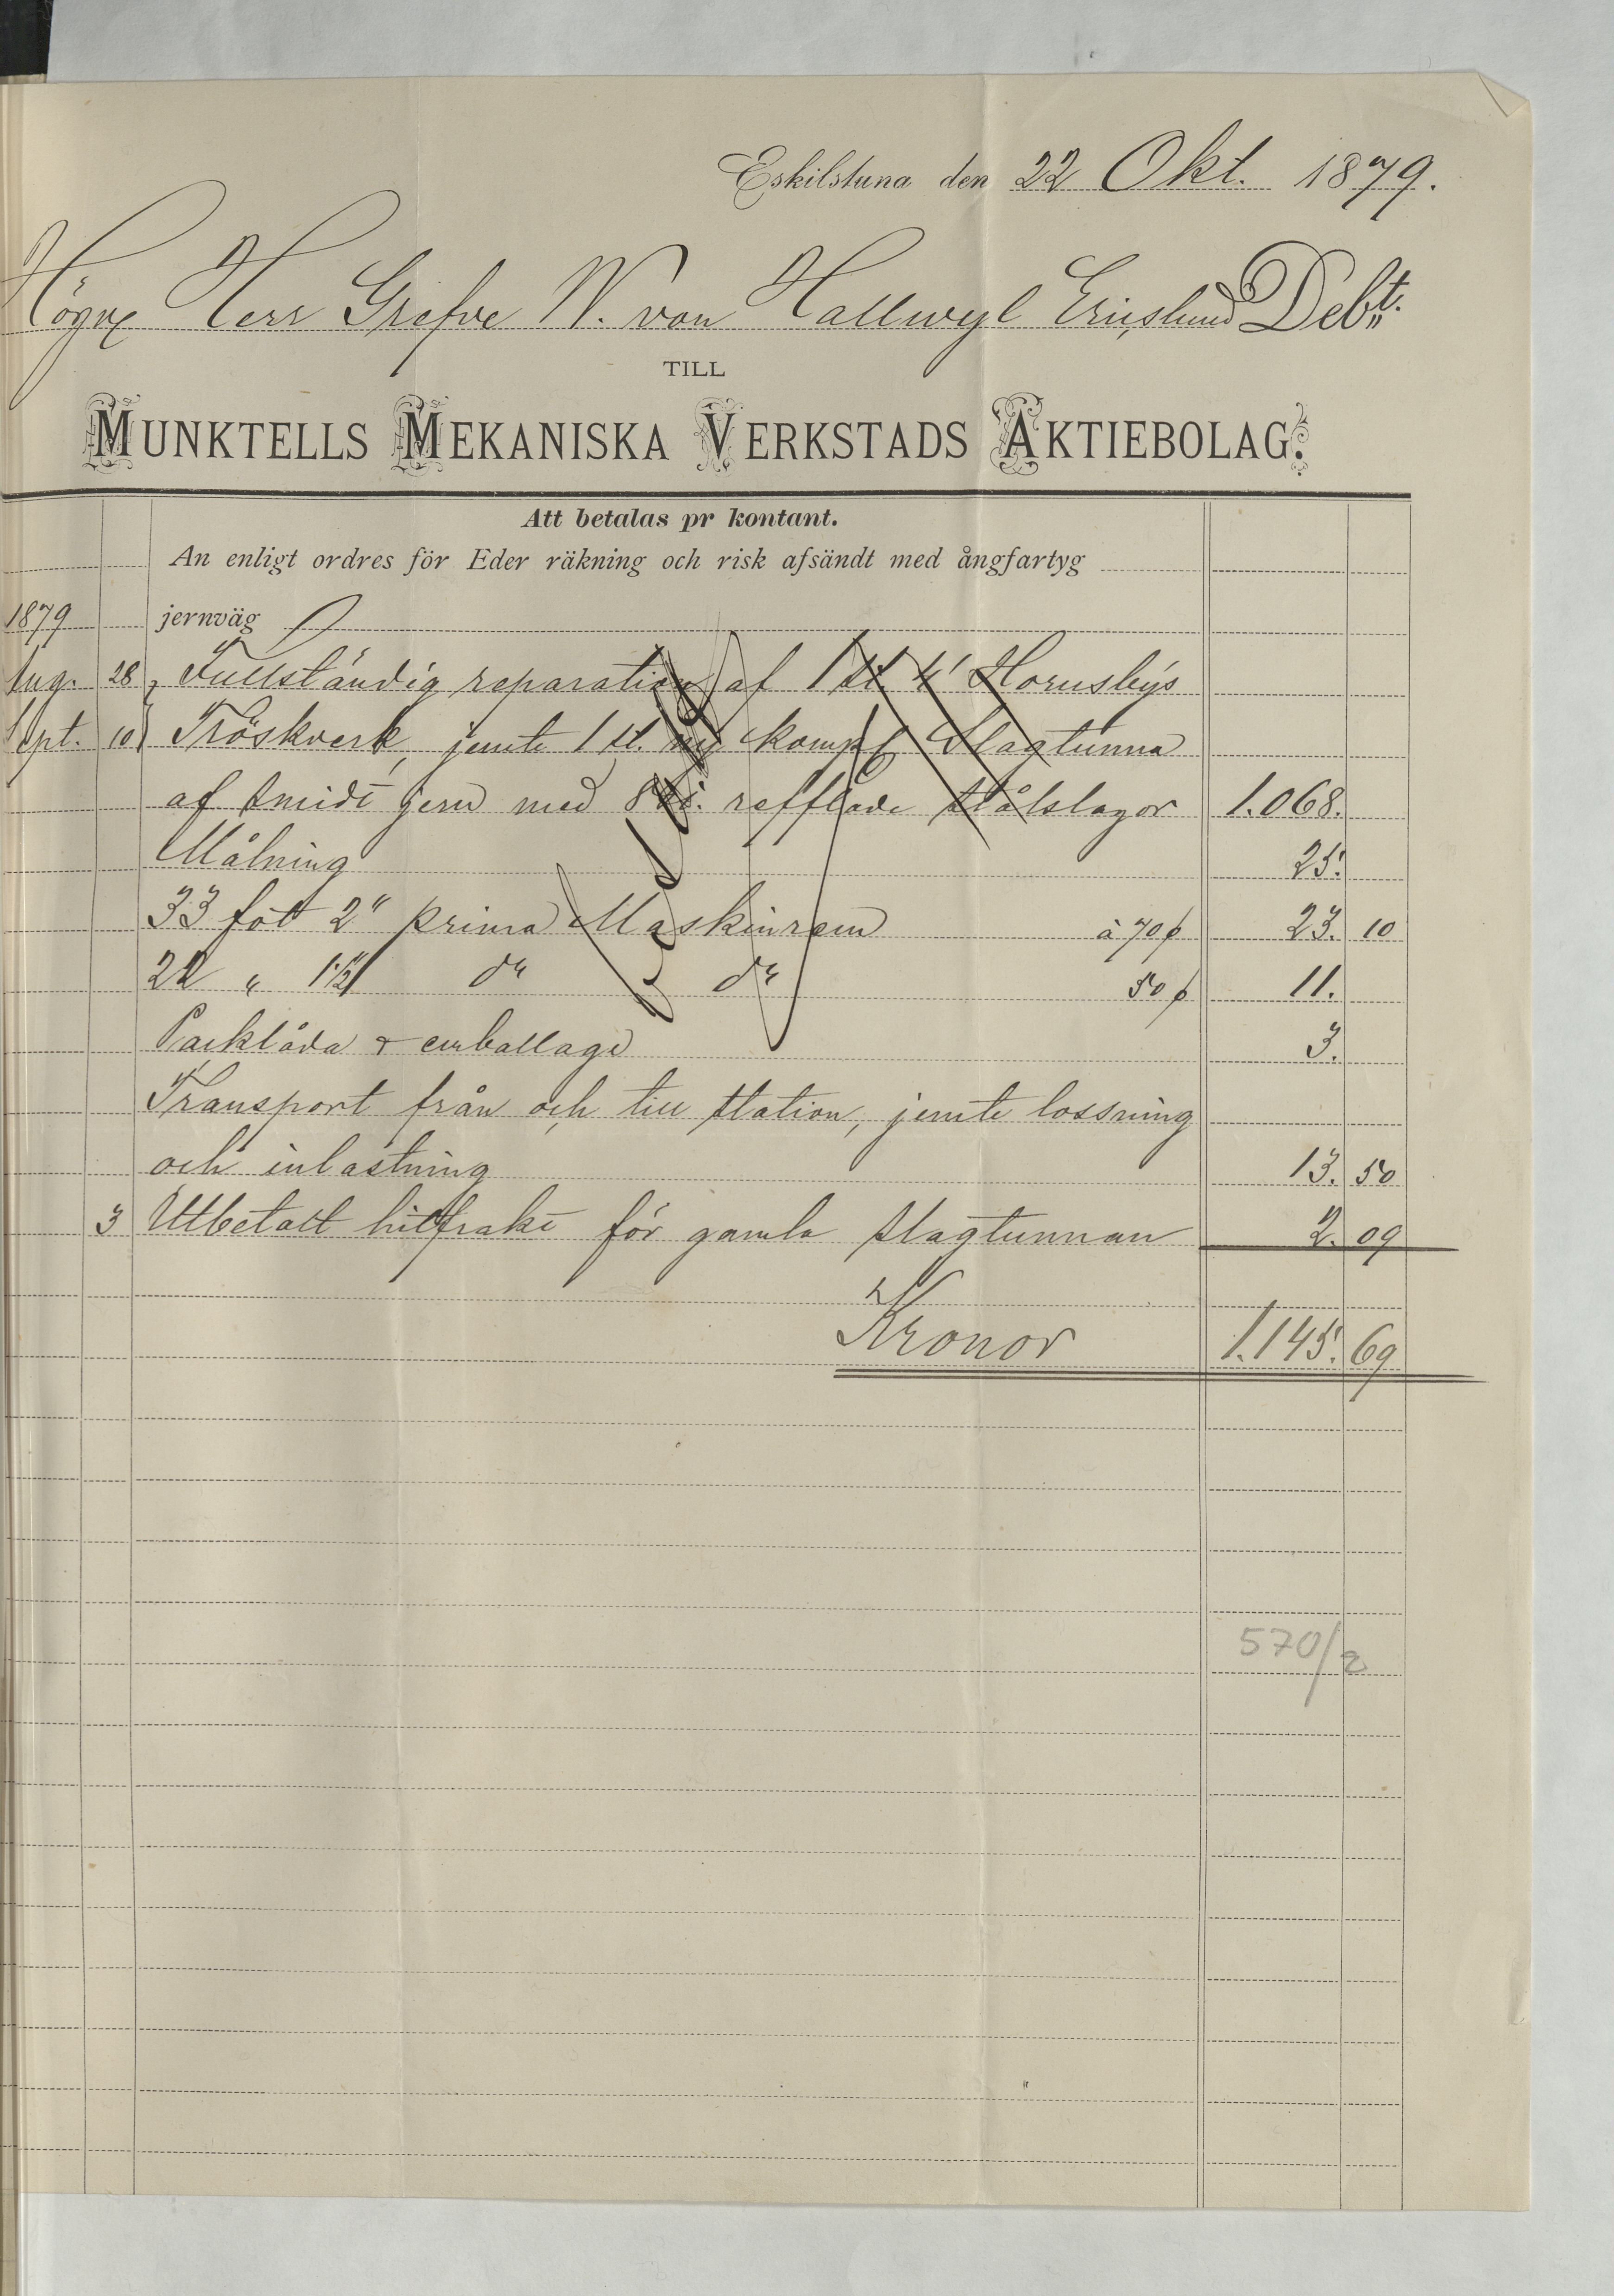 Eskilstuna den 22 Okt. 1879.
Högv. Herr Grefve W. von Hallwyl Ericslund Debt.
TILL
MUNKTELLS MEKANISKA VERKSTADS AKTIEBOLAG.
Att betalas pr kontant.
An enligt ordres för Eder räkning och risk afsändt med ångfartyg
1879 jernväg
Aug. 28 Fullständig reparation af 1 st. 4' Hornsby's
Sept. 10 Tröskverk, jemte 1 st. ny kompl. Slagtunna
af smidt jern med 8 st. refflade stålslagor 1.068.
Målning 25.
33 fot 2" prima Maskinrem à 70 23. 10
22 " 1 1/2" do do 50 11.
Packlåda & emballage 3.
Transport från och till station, jemte lossning
och inlastning 13. 50
3 Utbetalt hitfrakt för gamla slagtunnan 2. 09
Kronor 1.145. 69
570/2